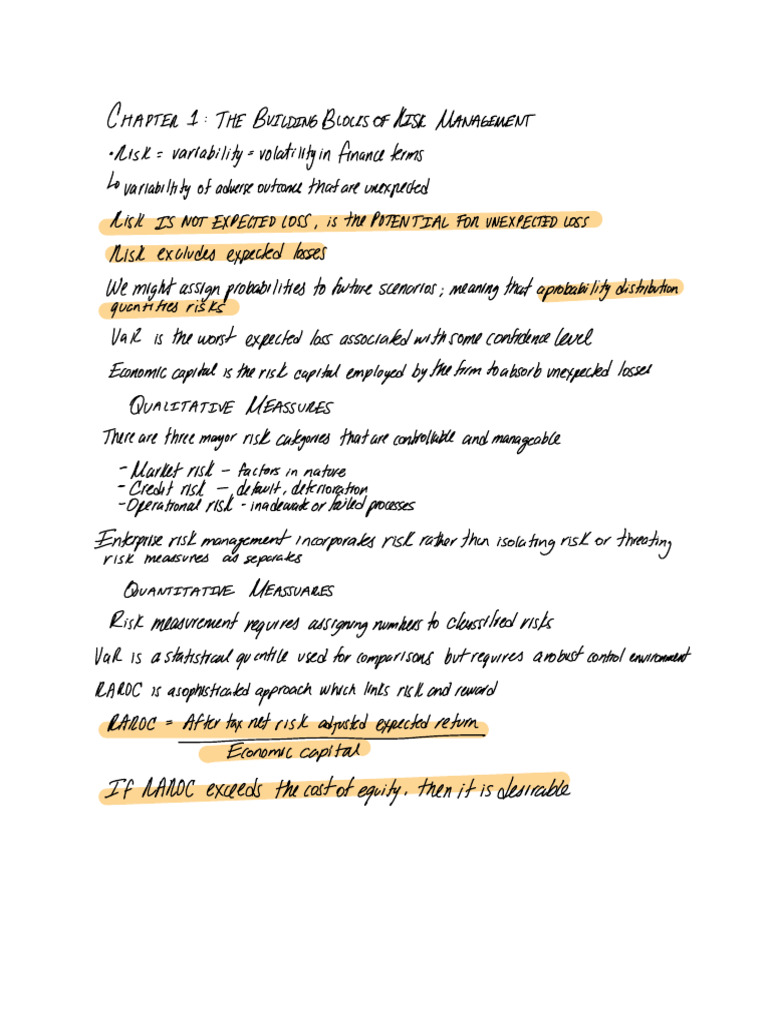 CHAPTER 1: THE BUILDING BLOCKS OF RISK MANAGEMENT
• Risk = variability = volatility in finance terms
↳ variability of adverse outcome that are unexpected
RISK IS NOT EXPECTED LOSS, is the POTENTIAL FOR UNEXPECTED LOSS
Risk excludes expected losses
We might assign probabilities to future scenarios; meaning that a probability distribution
quantifies risks
VaR is the worst expected loss associated with some confidence level
Economic capital is the risk capital employed by the firm to absorb unexpected losses
QUALITATIVE MEASSURES
There are three mayor risk categories that are controllable and manageable
- Market risk - factors in nature
- Credit risk - default, deterioration
- Operational risk - inadewate or failed processes
Enterprise risk management incorporates risk rather than isolating risk or threating
risk measures as separates
QUANTITATIVE MEASSUARES
Risk measurement requires assigning numbers to classified risks
VaR is a statistical quantile used for comparisons but requires a robust control environment
RAROC is a sophisticated approach which links risk and reward
RAROC = After tax net risk adjusted expected return
Economic capital
If RAROC exceeds the cost of equity, then it is desirable